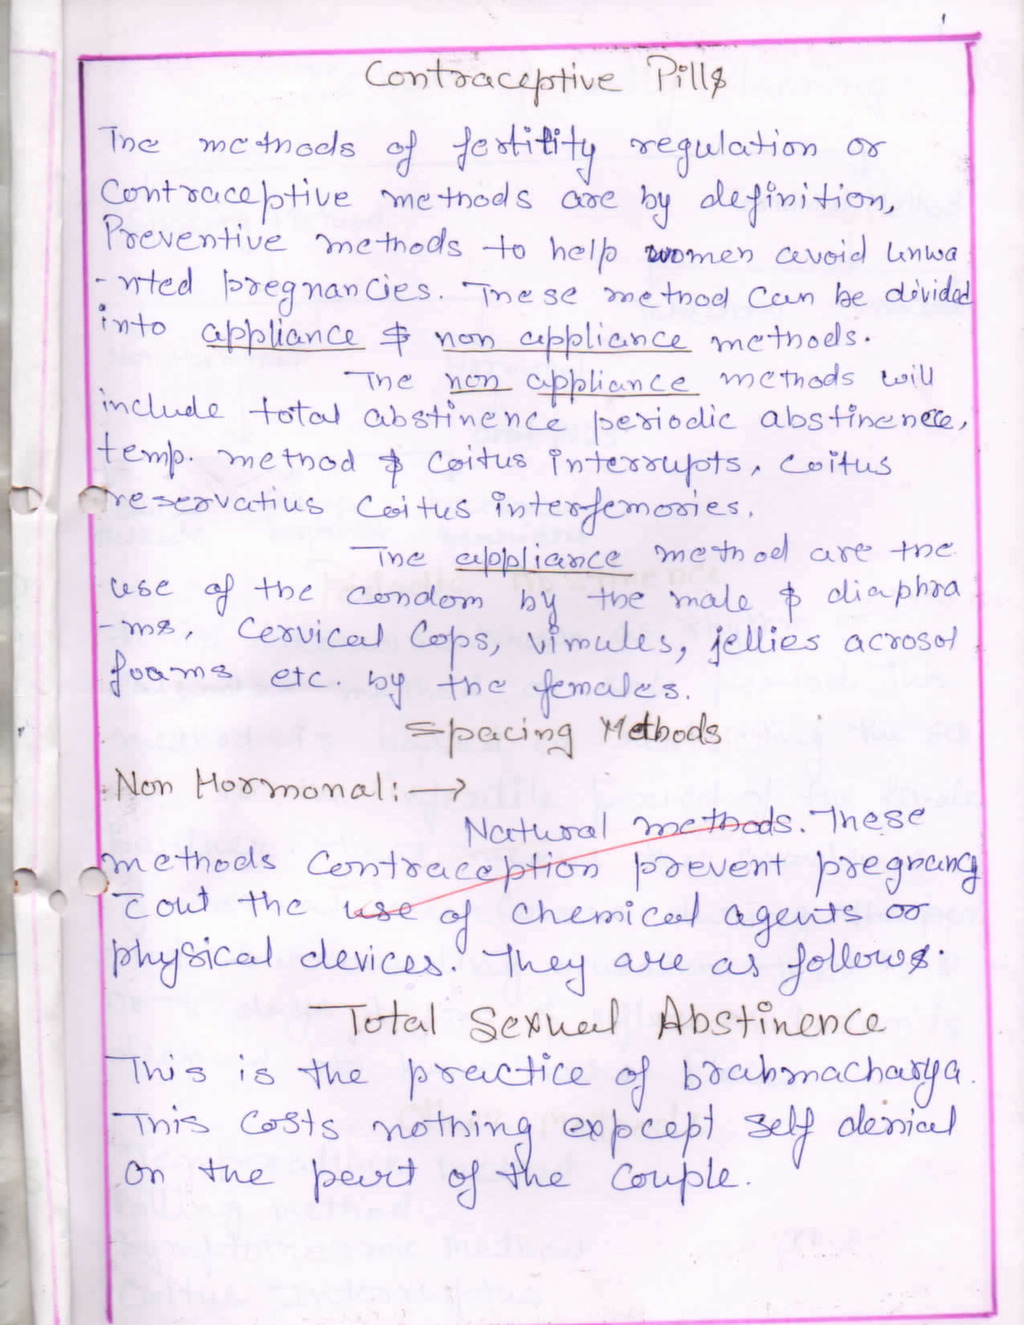 Contraceptive Pills
The methods of fertility regulation or
Contraceptive methods are by definition,
Preventive methods to help women avoid unwa
-nted pregnancies. These method can be divided
into appliance & non appliance methods.
The non appliance methods will
include total abstinence periodic abstinence,
temp. method & Coitus interrupts, coitus
reservatius Coitus interfemories.
The appliance method are the
use of the condom by the male & diaphra
-ms, Cervical Cops, vimules, jellies acrosol
foams etc. by the females.
Spacing Methods
Non Hormonal:→
Natural methods. These
methods Contraception prevent pregnancy
cout the use of chemical agents or
physical devices. They are as follows
Total Sexual Abstinence
This is the practice of brahmacharya.
This Costs nothing expcept self denial
on the part of the couple.